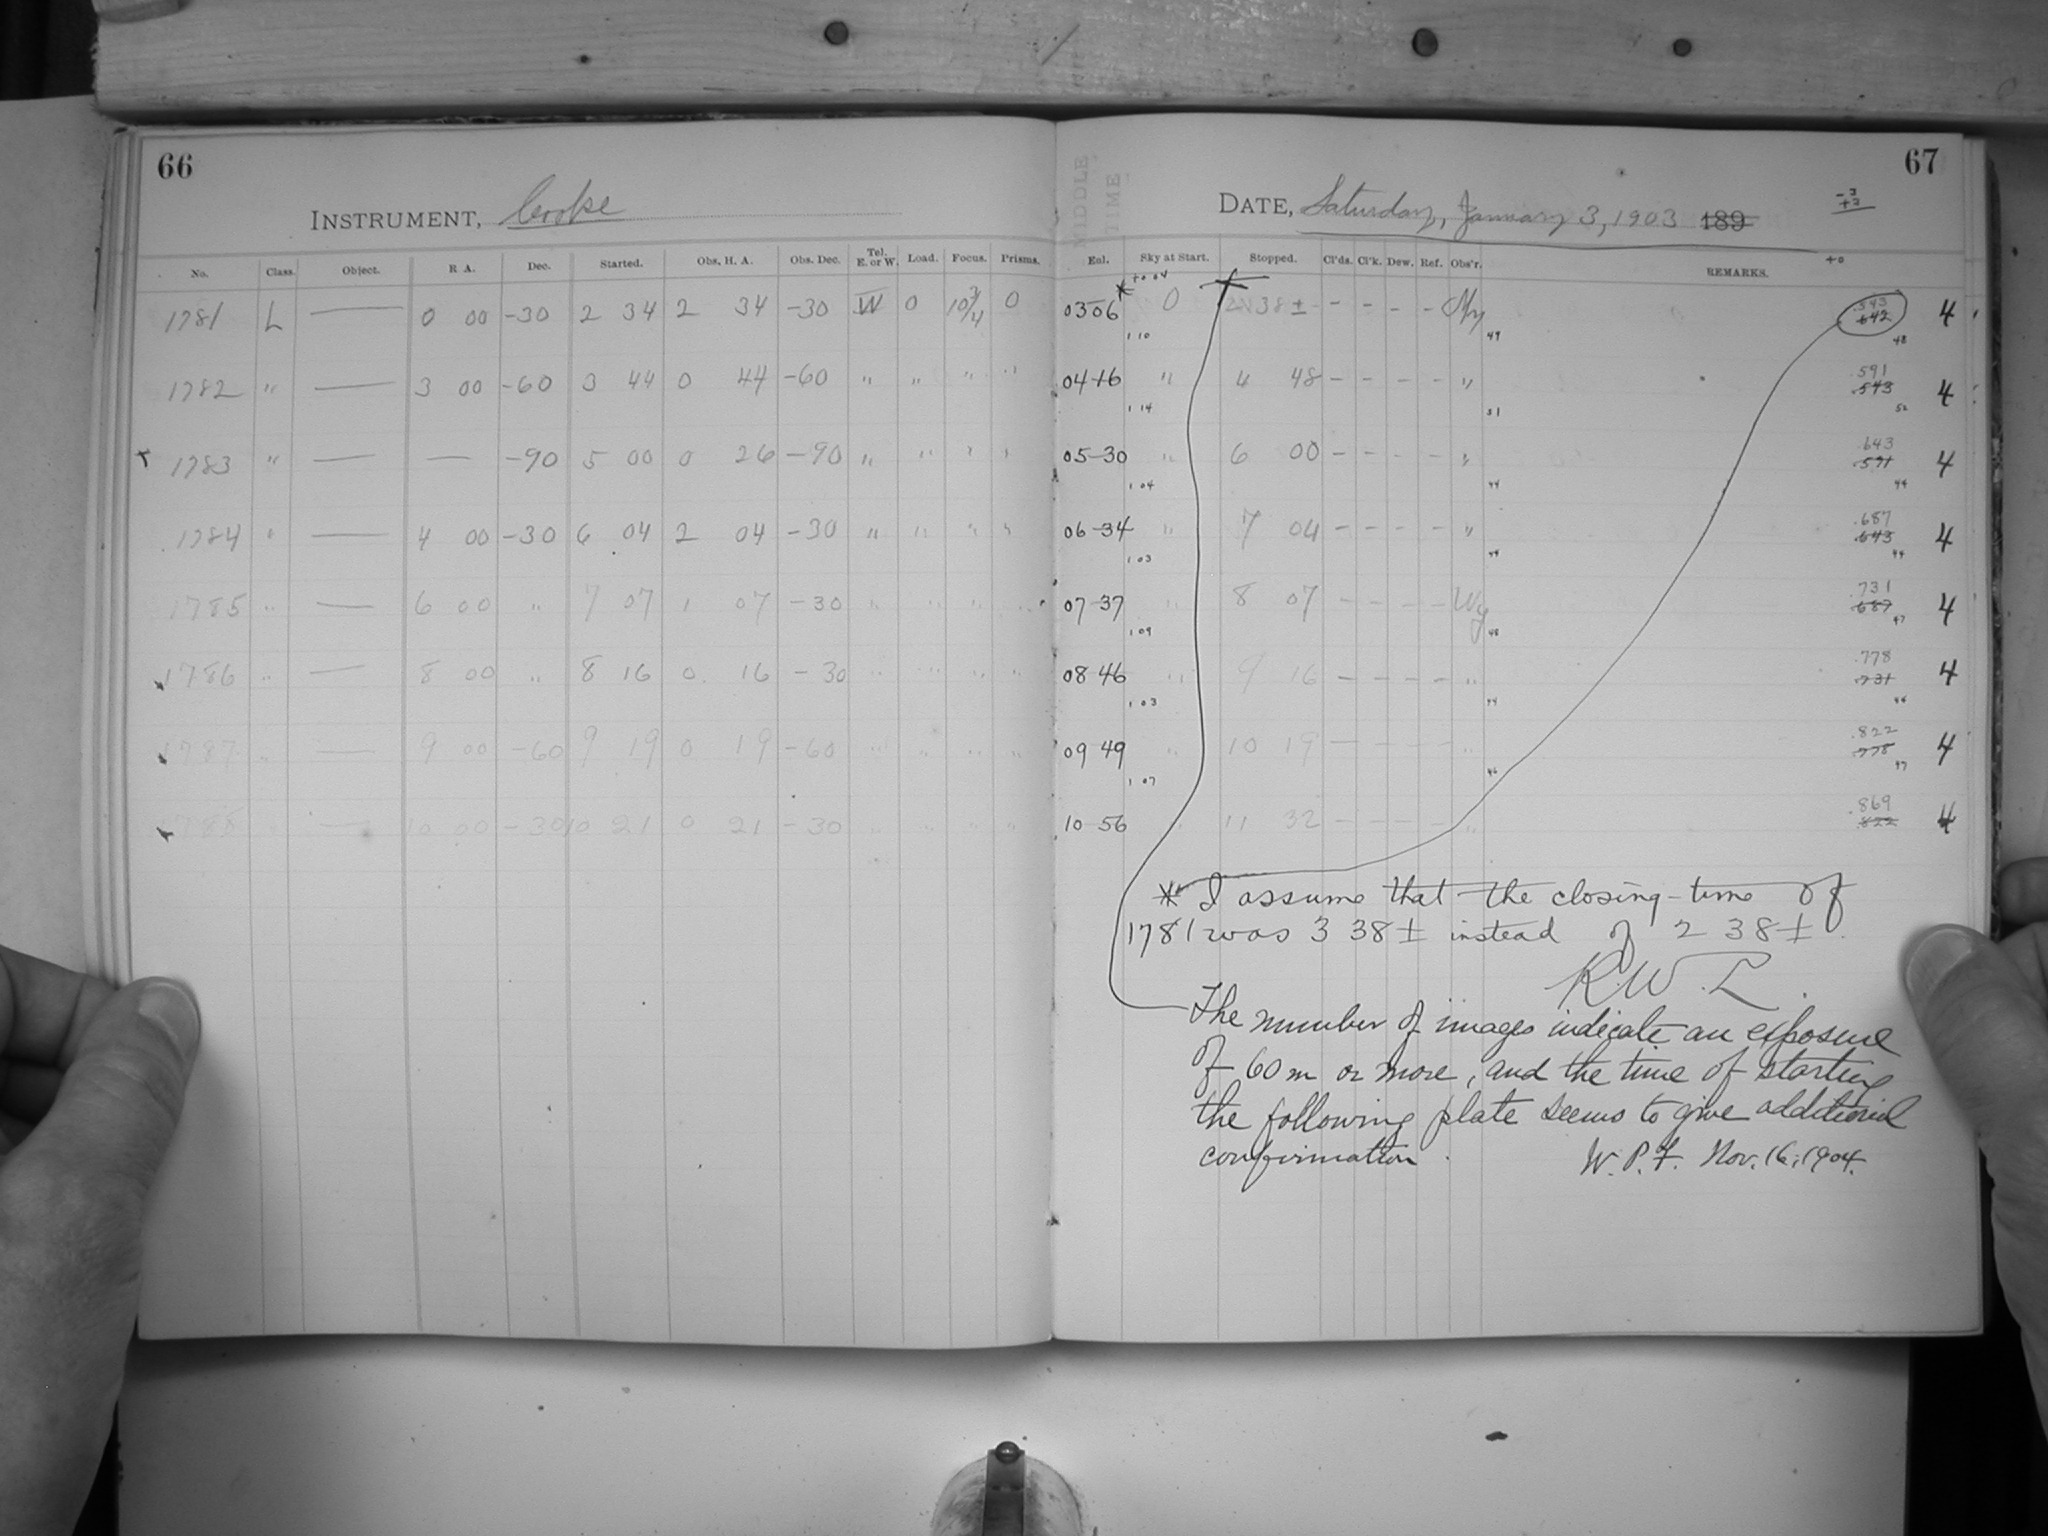 66
INSTRUMENT, Cooke
No. Class. Object. R A. Dec. Started. Obs. H. A. Obs. Dec. Tel. E. or W. Load. Focus. Prisms.
1781 L — 0 00 -30 2 34 2 34 -30 W 0 10 3/4 0
1782 " — 3 00 -60 3 44 0 44 -60 " " " "
1783 " — — -90 5 00 0 26 -90 " " " "
1784 " — 4 00 -30 6 04 2 04 -30 " " " "
1785 " — 6 00 " 7 07 1 07 -30 " " " "
1786 " — 8 00 " 8 16 0 16 -30 " " " "
1787 " — 9 00 -60 9 19 0 19 -60 " " " "
1788 " — 10 00 -30 10 21 0 21 -30 " " " "
MIDDLE TIME
67
DATE, Saturday, January 3, 1903 189
-3
+3
Eul. Sky at Start. Stopped. Cl'ds. Cl'k. Dew. Ref. Obs'r. REMARKS. +0
* +0 04
03 06 0 2 38± - - - - .543 642 4
1 10 49 48
04 16 " 4 48 - - - - " .591 .543 4
1 14 51 52
05-30 " 6 00 - - - - " .643 .591 4
1 04 44 44
06-34 " 7 04 - - - - " .687 .643 4
1 03 44 44
07-37 " 8 07 - - - - Wy .731 .687 4
1 09 48 47
08 46 " 9 16 - - - - " .778 .731 4
1 03 44 44
09 49 " 10 19 - - - - " .822 .778 4
1 07 46 47
10-56 " 11 32 - - - - " .869 .822 4
* I assume that the closing-time of
1781 was 3 38± instead of 2 38±.
R.W.L.
The number of images indicate an exposure
of 60m or more, and the time of starting
the following plate seems to give additional
confirmation.
W. P. F. Nov. 16, 1904.